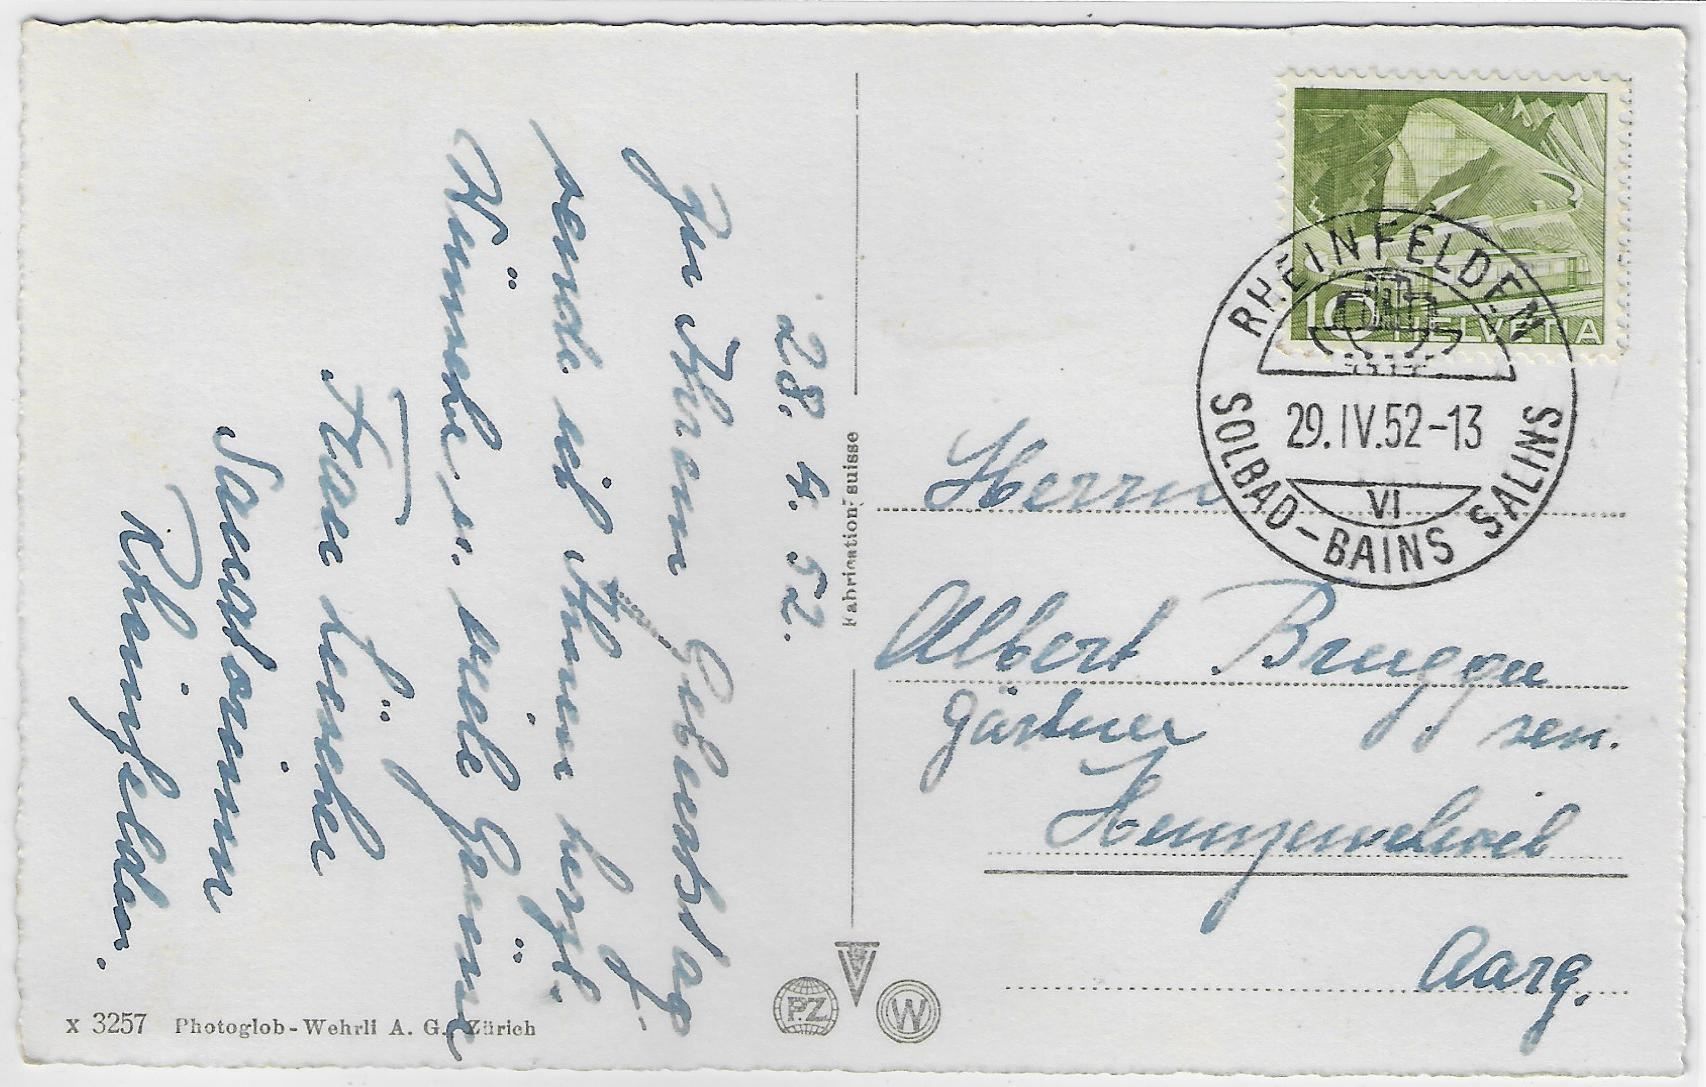 28. 4. 52.
Zu Ihrem Geburtstag
sende ich Ihnen herzl.
Wünsche u. viele Grüsse
Frau Lüscher
Sanatorium
Rheinfelden.
Fabrication suisse
x 3257 Photoglob-Wehrli A. G., Zürich
PZ
W
10 HELVETIA
RHEINFELDEN
29.IV.52-13
VI
SOLBAD-BAINS SALINS
Herrn
Albert Brugger
Gärtner sen.
Aarg.